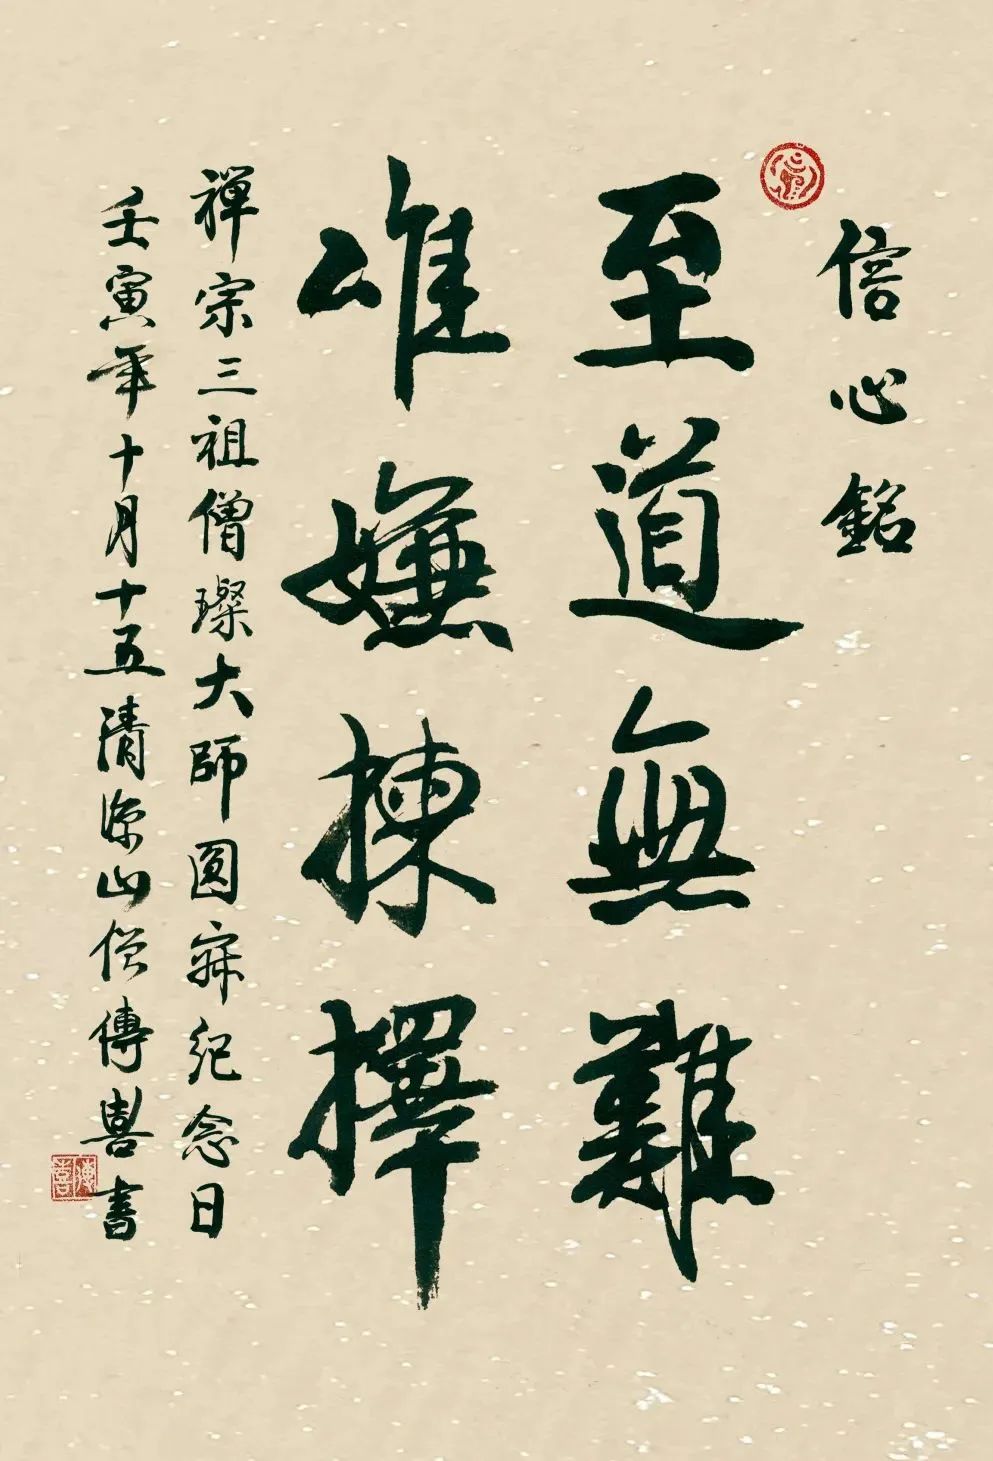 信心銘
至道無難
唯嫌揀擇
禪宗三祖僧璨大師圓寂纪念日
壬寅年十月十五清源山僧傳喜書
傳喜